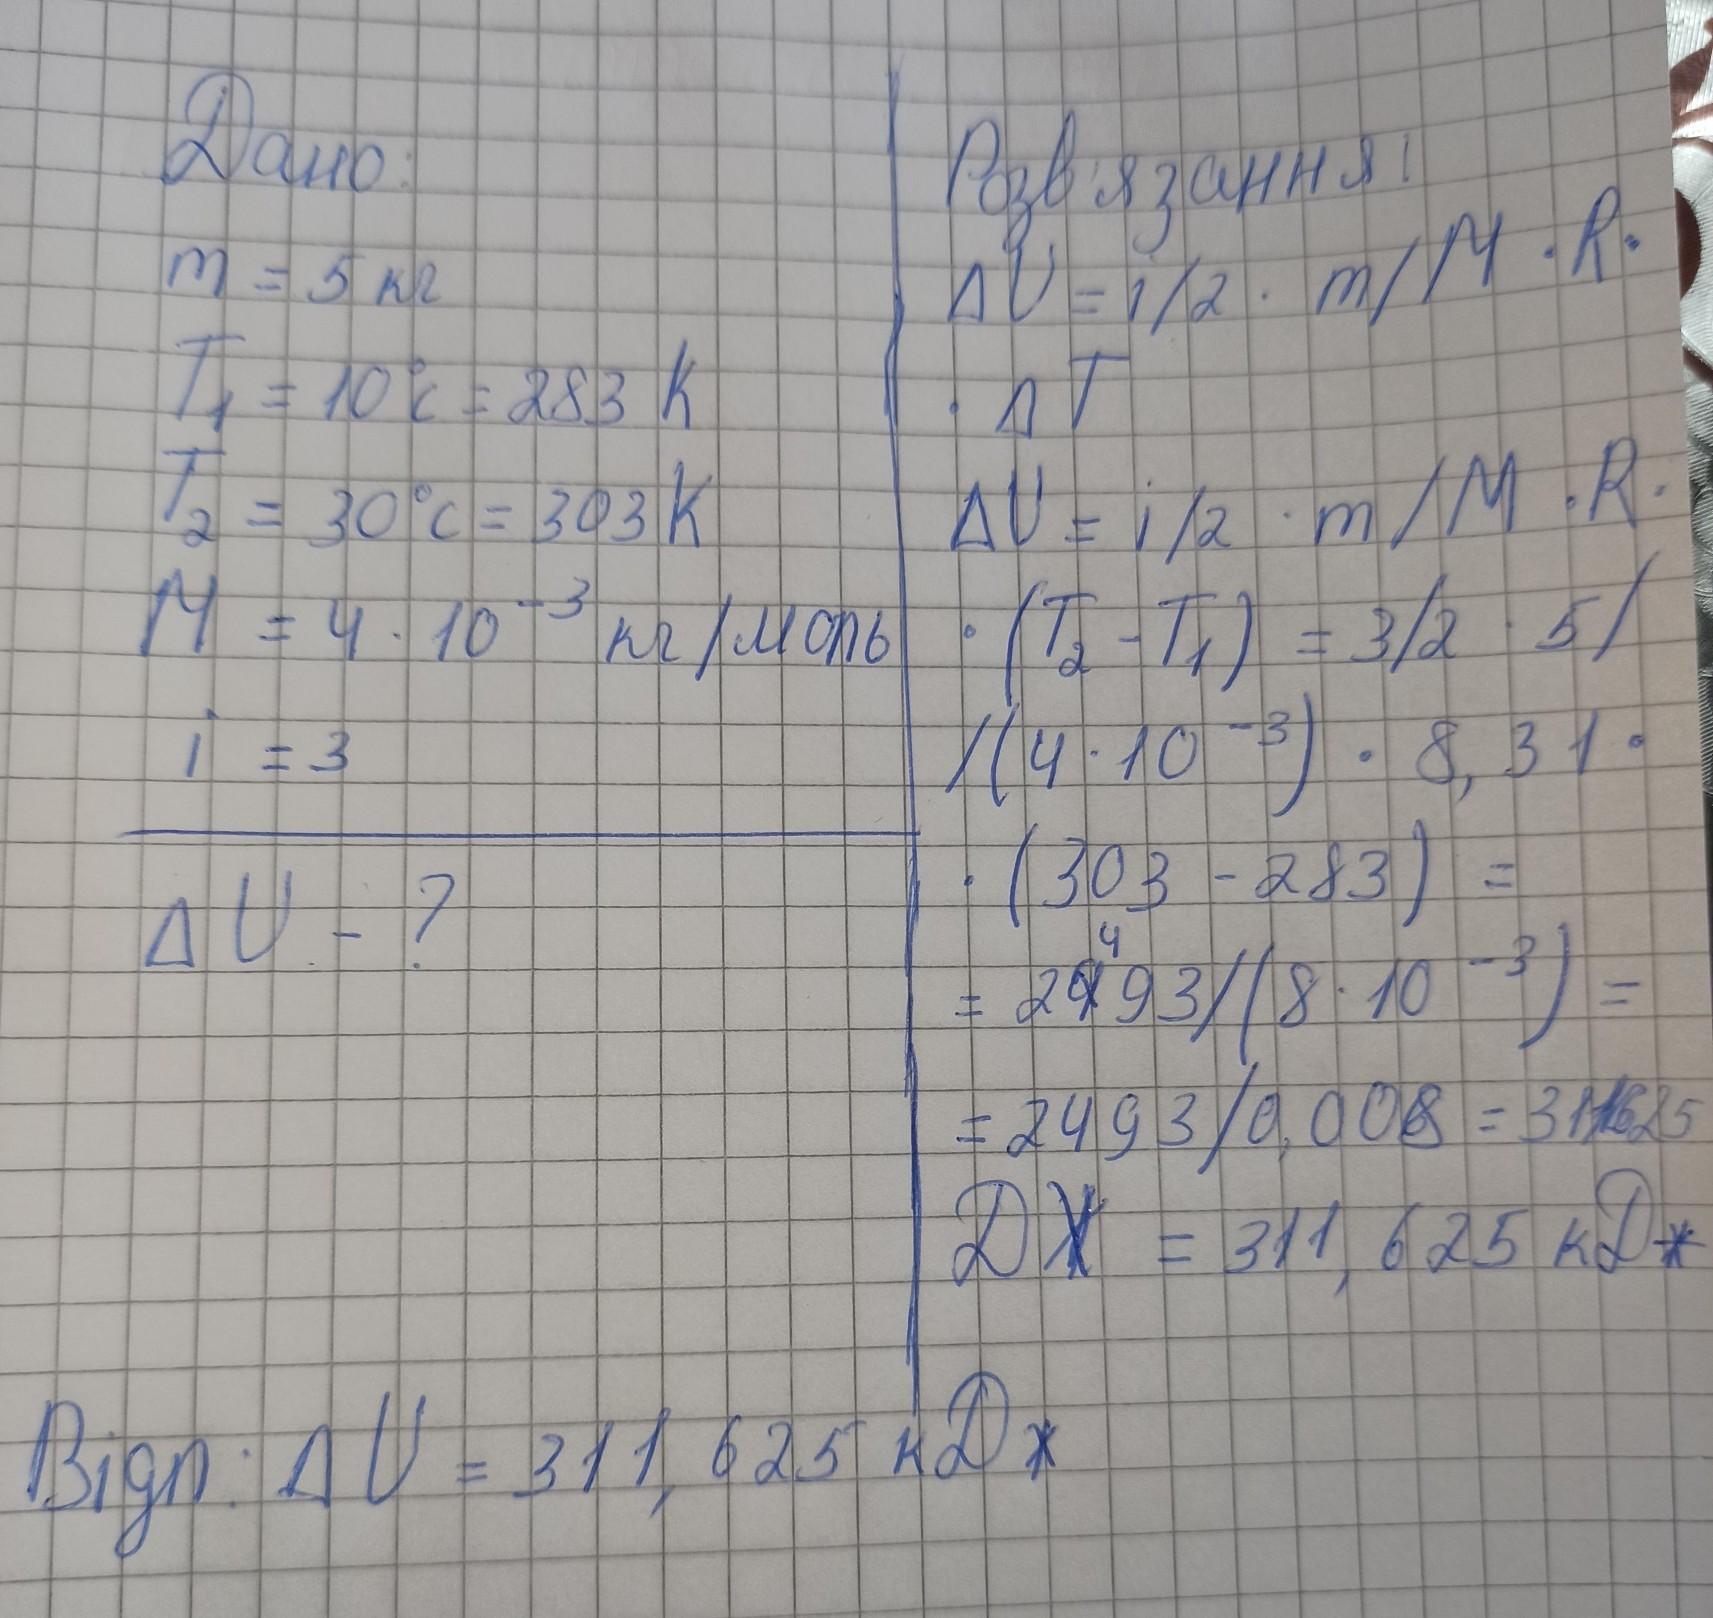 Дано:
m = 5 кг
T₁ = 10°c = 283 K
T₂ = 30°c = 303 K
M = 4 · 10⁻³ кг/моль
i = 3
ΔU - ?
Розв'язання:
ΔU = i/2 · m/M · R ·
· ΔT
ΔU = i/2 · m/M · R ·
· (T₂ - T₁) = 3/2 · 5/
/(4 · 10⁻³) · 8,31 ·
· (303 - 283) =
= 2493/(8 · 10⁻³) =
= 2493/0,008 = 311625
Дж = 311,625 кДж
Відп: ΔU = 311,625 кДж